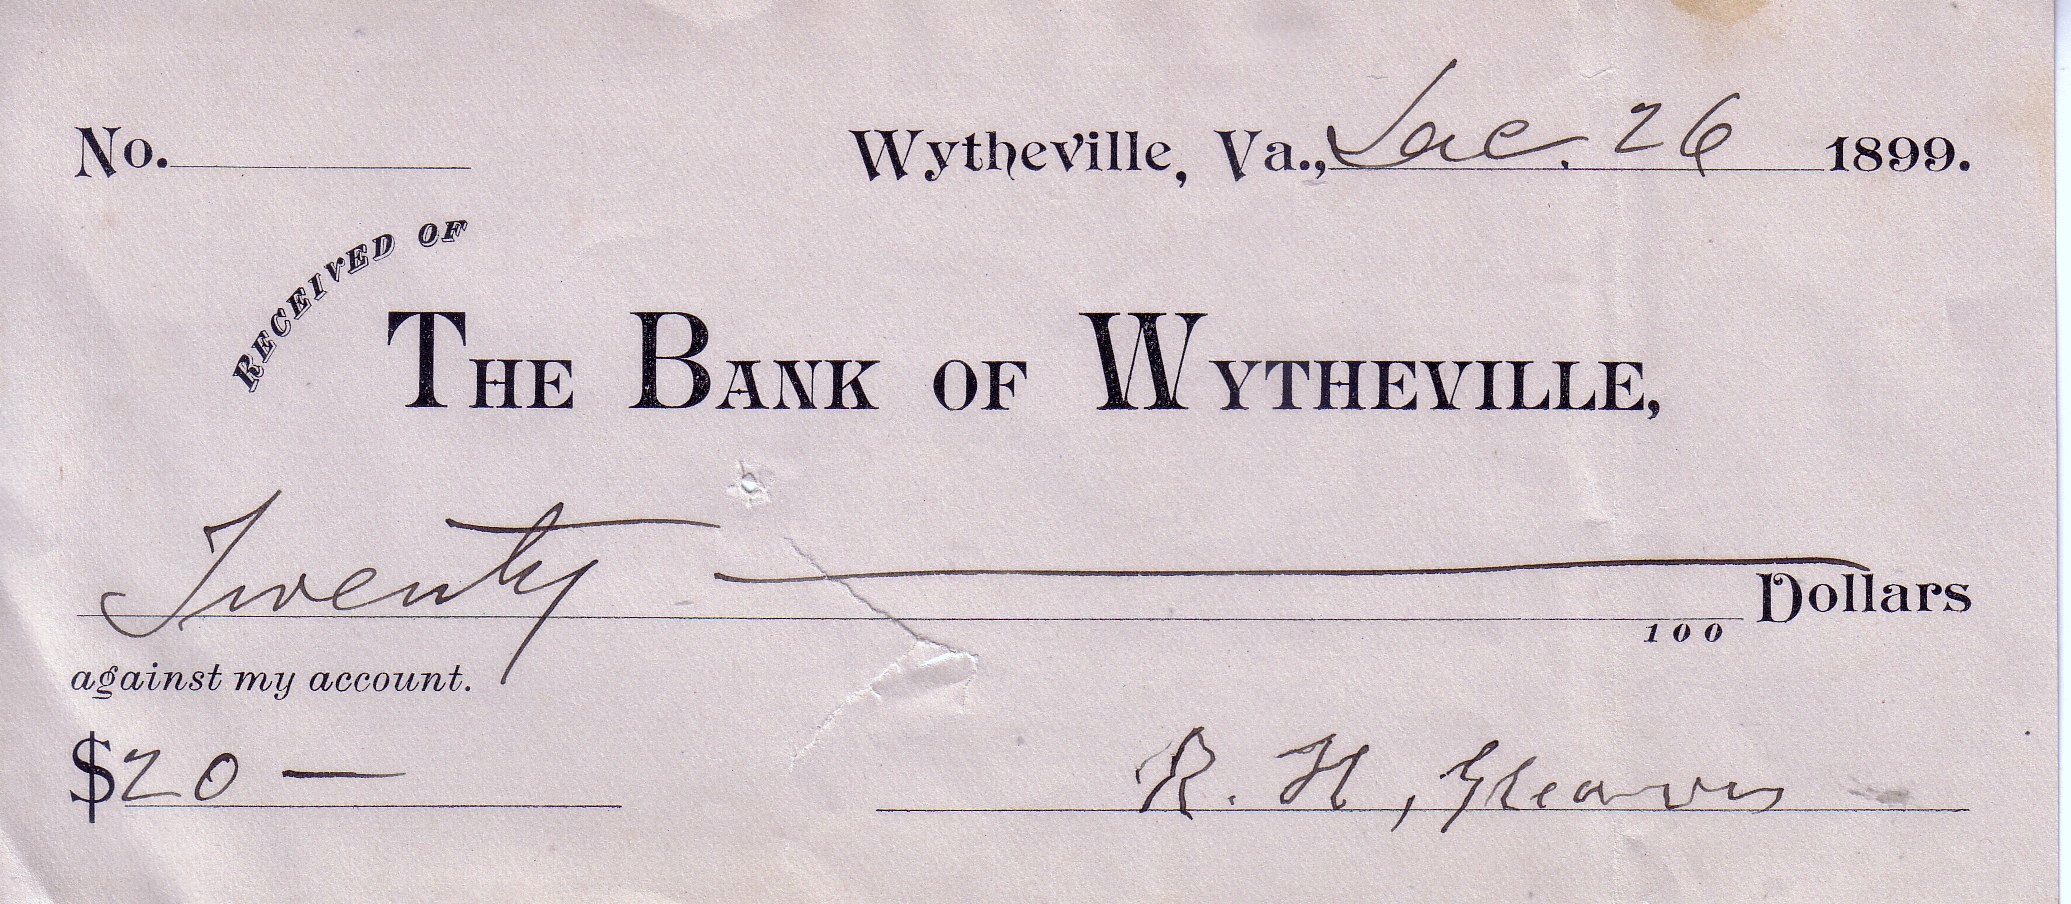 No. Wytheville, Va., Dec. 26 1899.
RECEIVED OF
THE BANK OF WYTHEVILLE,
Twenty Dollars
100
against my account.
$20 —
R. H, Gleaves